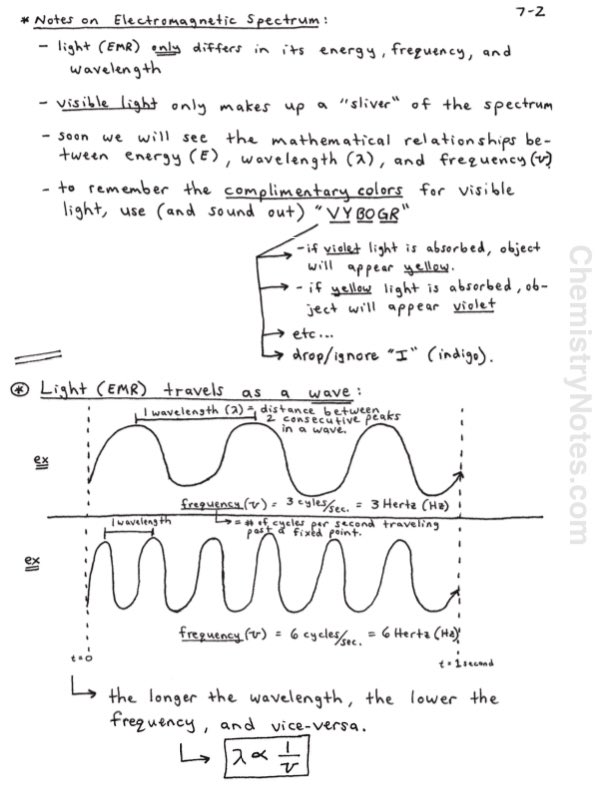 7-2
* Notes on Electromagnetic Spectrum:
- light (EMR) only differs in its energy, frequency, and
wavelength
- visible light only makes up a "sliver" of the spectrum
- soon we will see the mathematical relationships be-
tween energy (E), wavelength (λ), and frequency (ν)
- to remember the complimentary colors for visible
light, use (and sound out) "VYBOGR"
- if violet light is absorbed, object
will appear yellow.
- if yellow light is absorbed, ob-
ject will appear violet
etc...
drop/ignore "I" (indigo).
* Light (EMR) travels as a wave:
1 wavelength (λ) = distance between
2 consecutive peaks
in a wave.
ex
frequency (ν) = 3 cycles/sec. = 3 Hertz (Hz)
1 wavelength
= # of cycles per second traveling
past a fixed point.
ex
frequency (ν) = 6 cycles/sec. = 6 Hertz (Hz)
t=0
t=1 second
the longer the wavelength, the lower the
frequency, and vice-versa.
λ ∝ 1/ν
ChemistryNotes.com